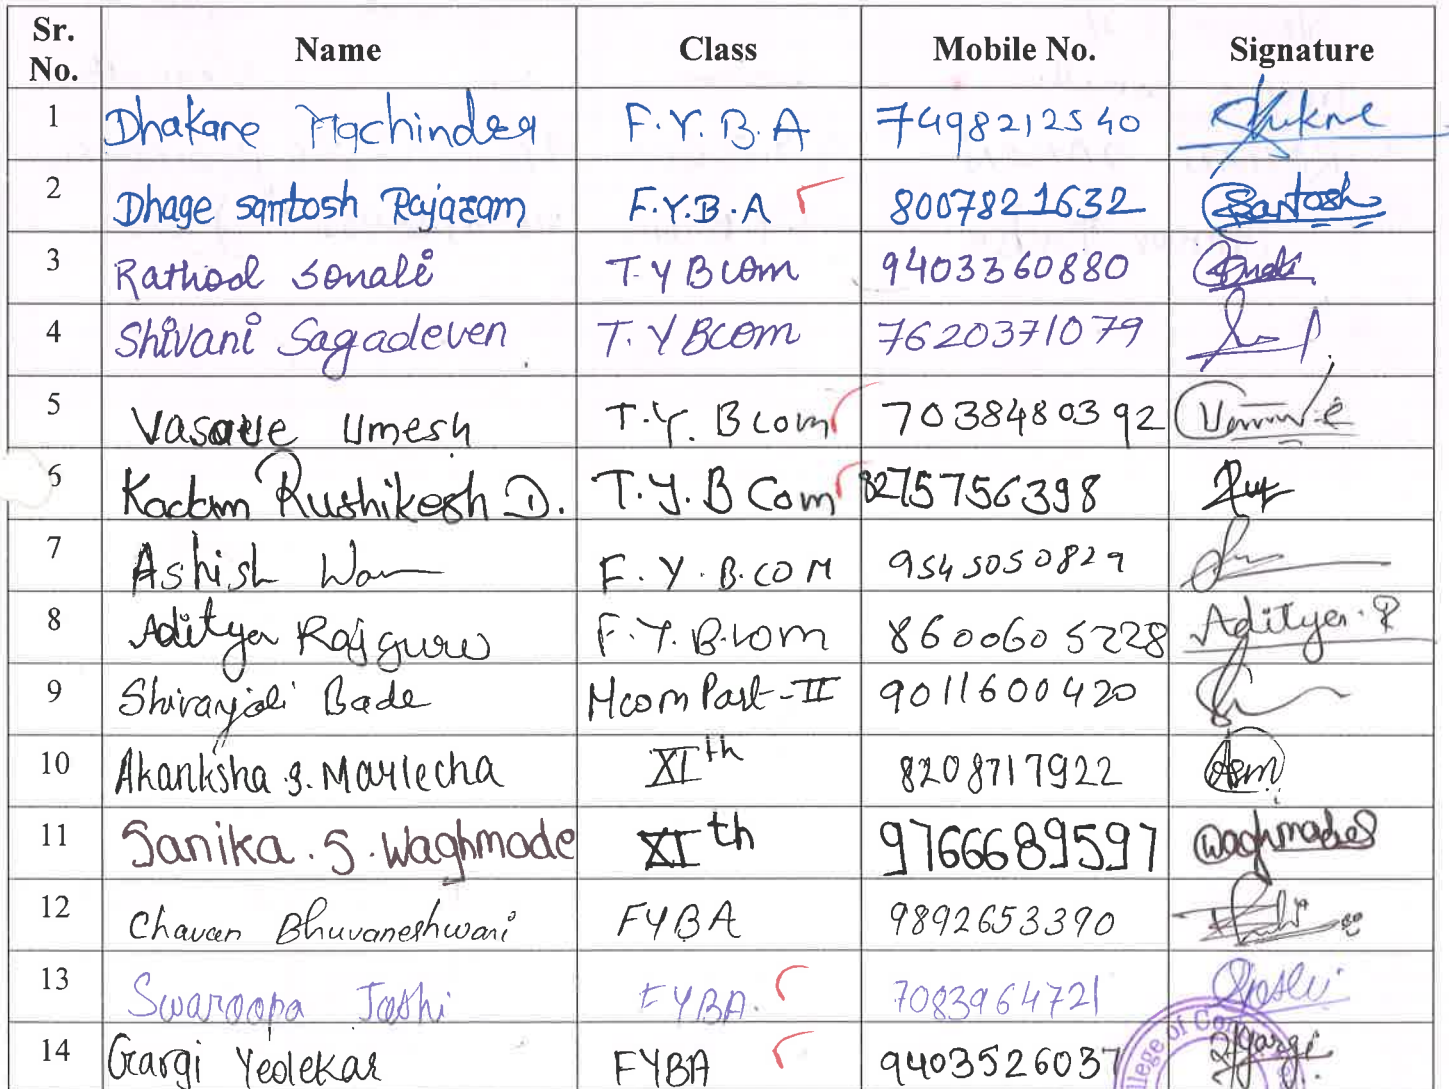 Sr. No. Name Class Mobile No. Signature
1 Dhakane Machindra F.Y.B.A 7498212540
2 Dhage santosh Rajaram F.Y.B.A 8007821632 Santosh
3 Rathod Sonali T.Y Bcom 9403360880
4 Shivani Sagadeven T.Y Bcom 7620371079
5 Vasave Umesh T.Y. Bcom 7038480392
6 Kadam Rushikesh D. T.Y.B Com 8275756398
7 Ashish F.Y.B.COM 9545050829
8 Aditya Rajguru F.Y.B.com 8600605228 Aditya.R
9 Shivanjali Bade Mcom Part-II 9011600420
10 Akanksha S. Marlecha XIth 8208717922 Asm
11 Sanika.S.Waghmode XIth 9766689597 Waghmode
12 Chavan Bhuvaneshwari FYBA 9892653390
13 Swaroopa Joshi FYBA. 7083964721 Joshi
14 Gargi Yeolekar FYBA 9403526037 Gargi